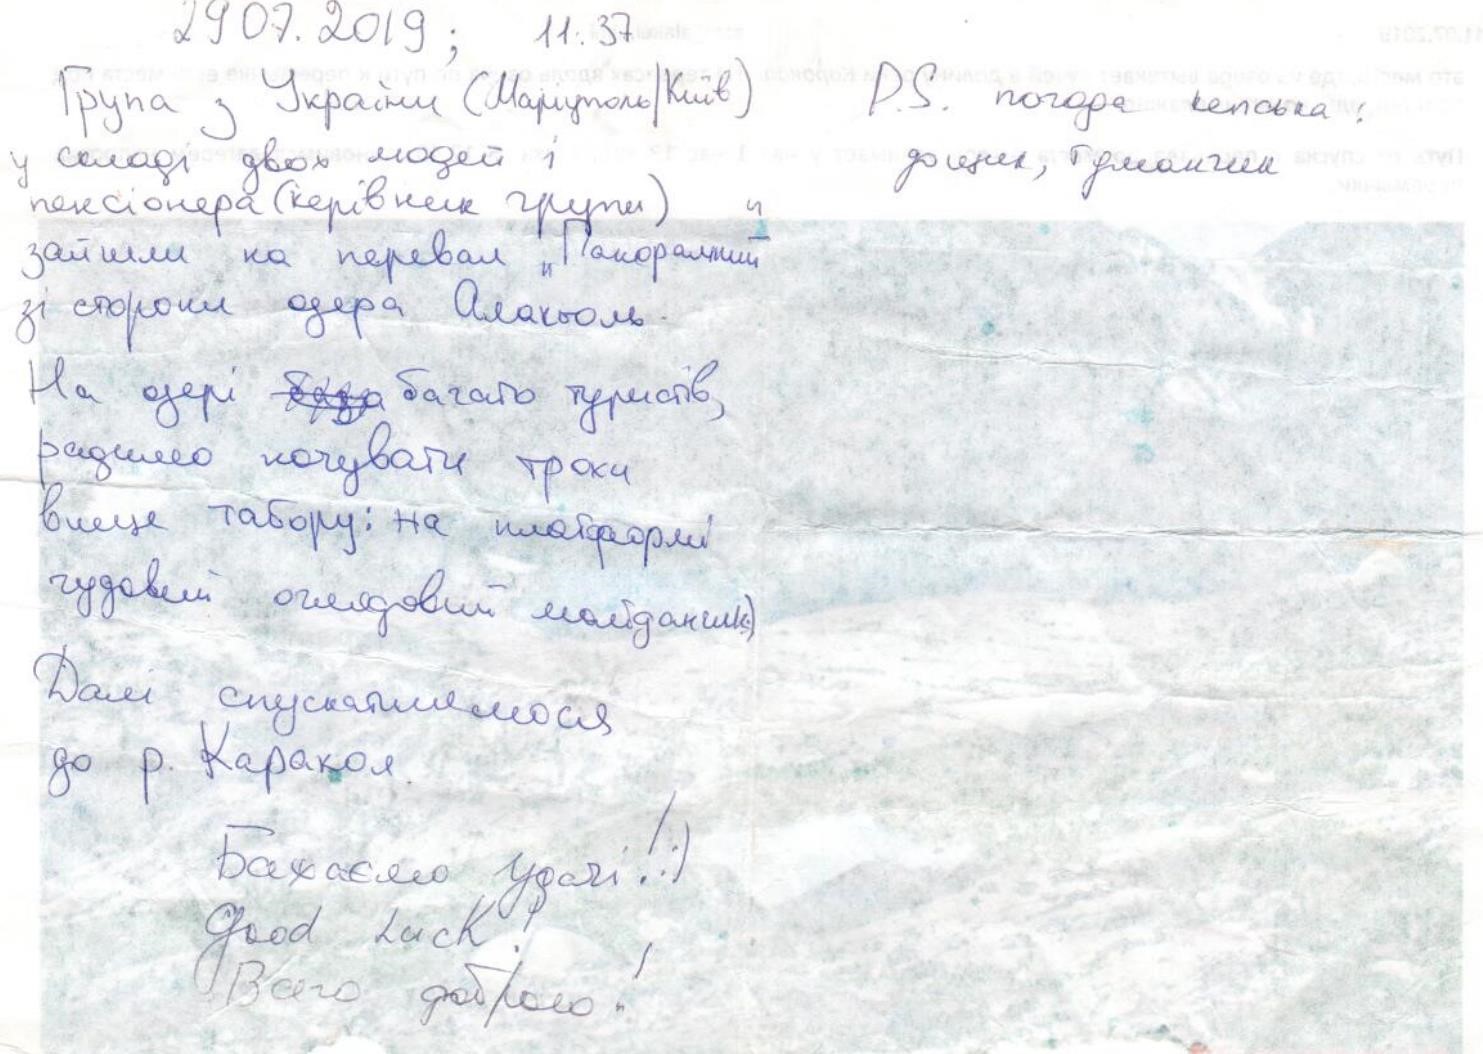 29 07. 2019 ; 11:37
Група з України (Маріуполь/Київ)
у складі двох людей і
пенсіонера (керівник групи)
зайшли на перевал „Панорамний"
зі сторони озера Алаколь.
На озері багато туристів,
радимо ночувати трохи
вище табору: на платформі
чудовий оглядовий майданчик)
Далі спускатимемося
до р. Каракол.
Бажаємо удачі!:)
Good Luck!
Всего доброго!
P.S. погода кепська:
дощик, туманчик